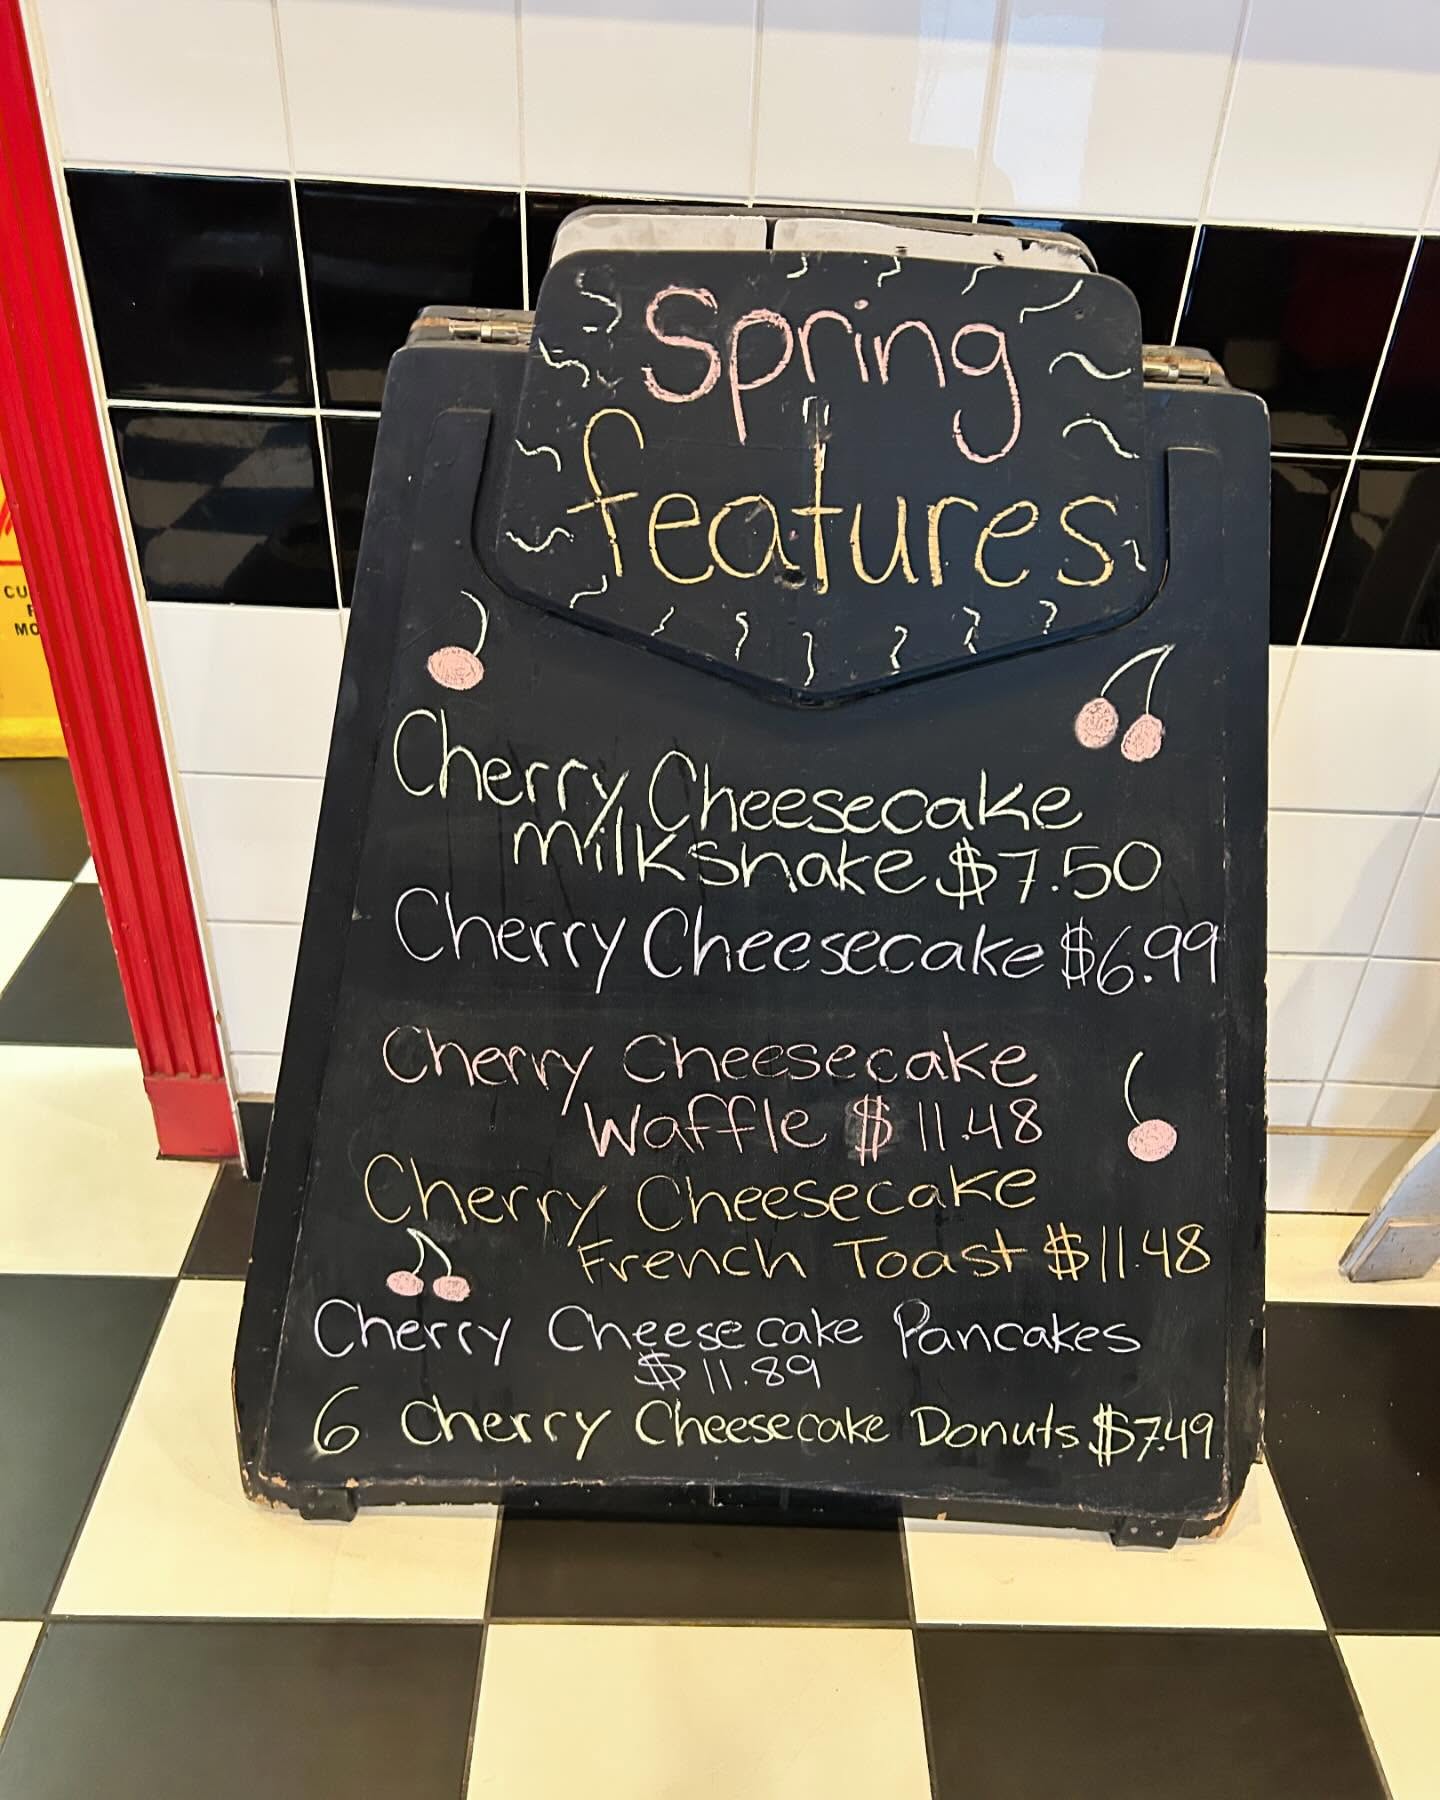 Spring
features
Cherry Cheesecake
milkshake $7.50
Cherry Cheesecake $6.99
Cherry Cheesecake
Waffle $11.48
Cherry Cheesecake
French Toast $11.48
Cherry Cheesecake Pancakes
$11.89
6 Cherry Cheesecake Donuts $7.49